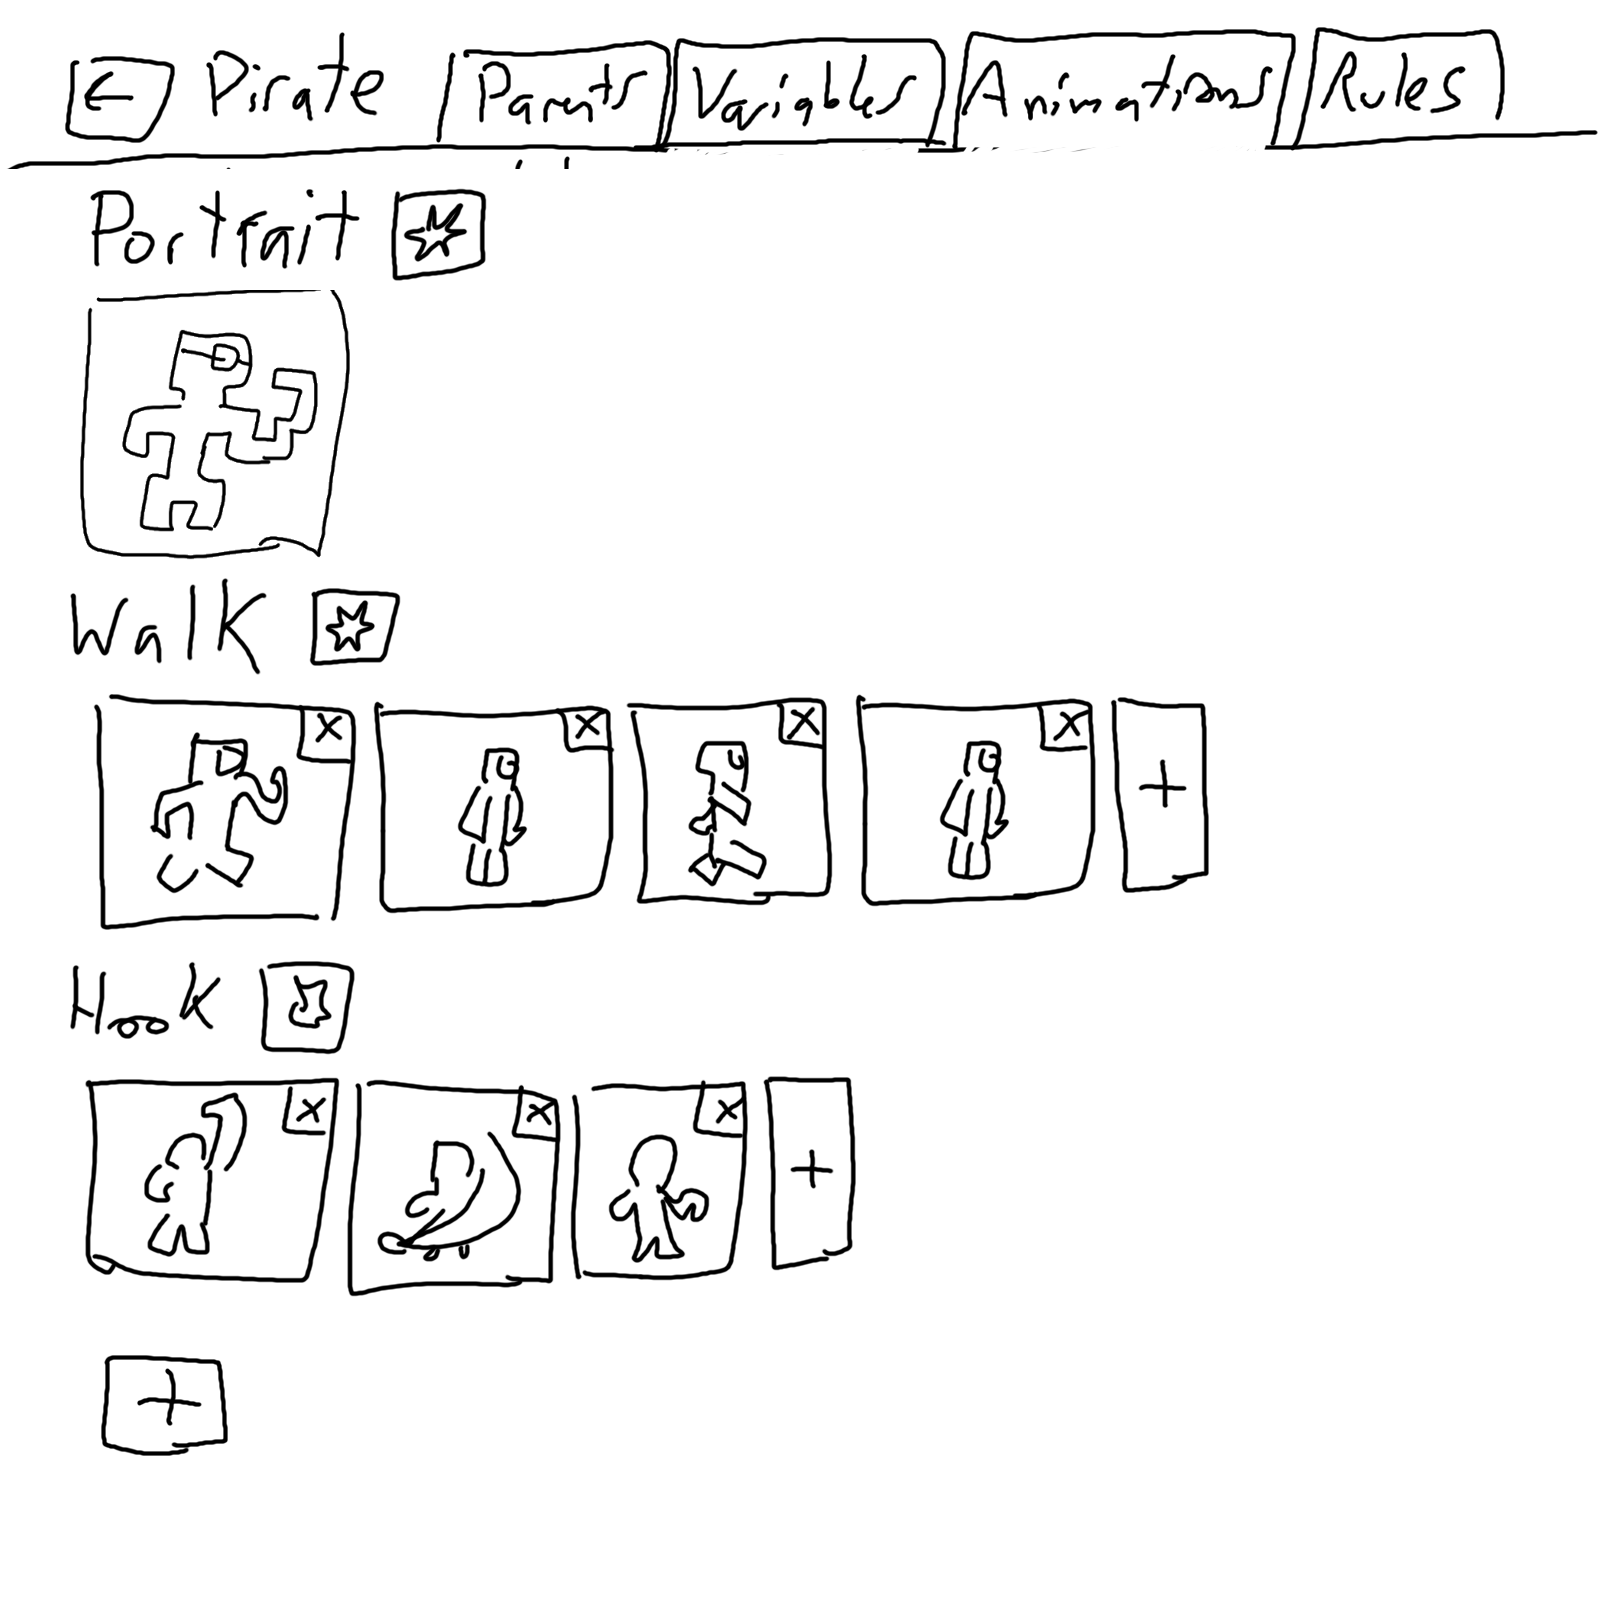 ← Pirate Parents Variables Animations Rules
Portrait
Walk
X X X X +
Hook
X X X +
+